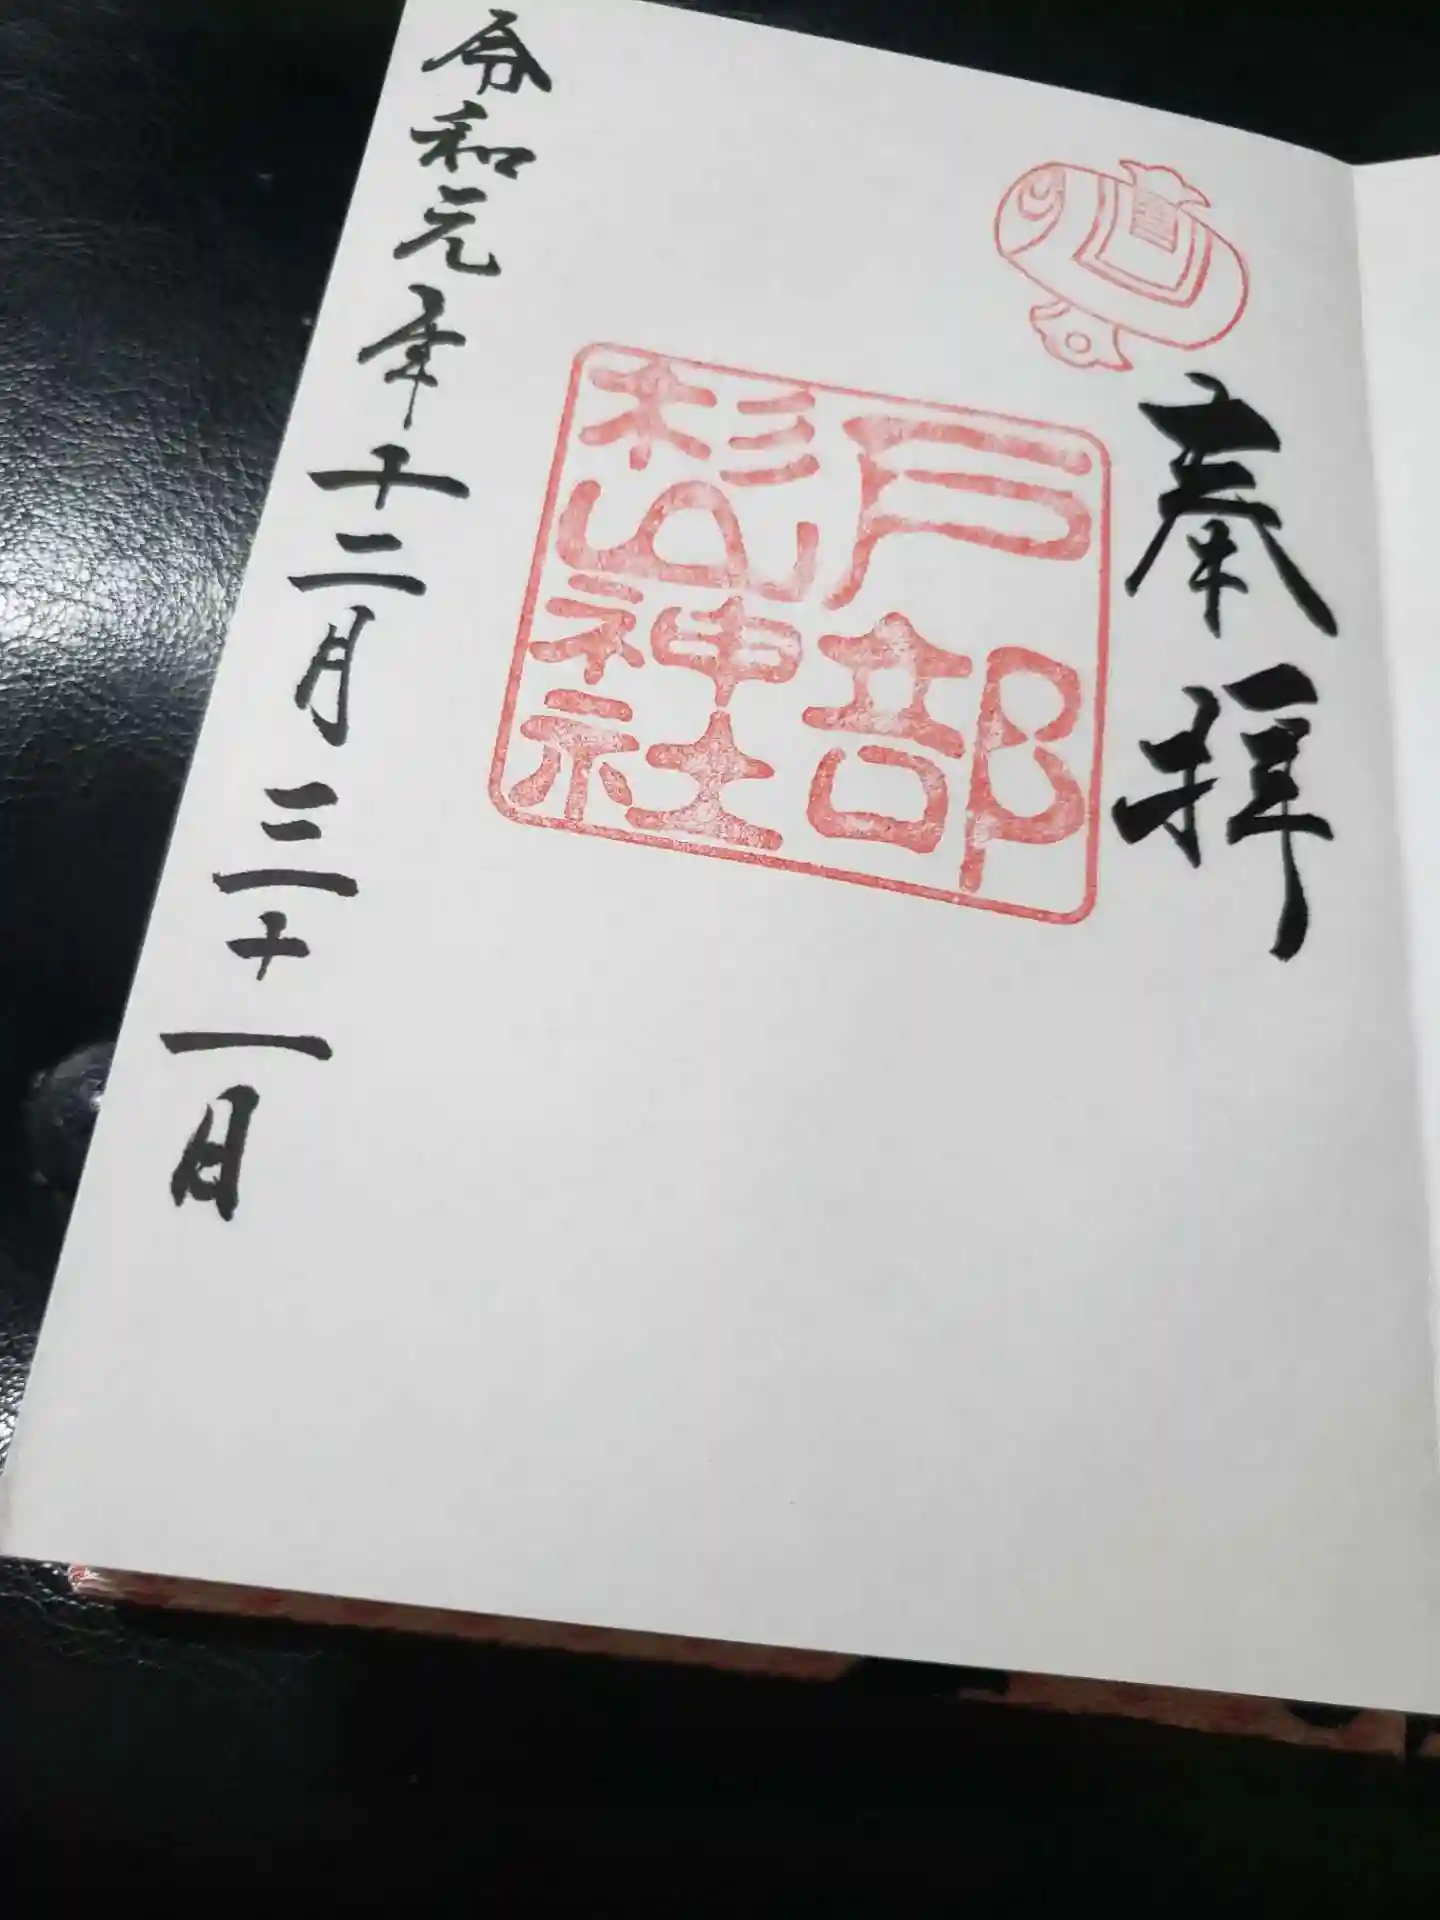 奉拝
戸部
杉山
神社
令和元年十二月三十一日